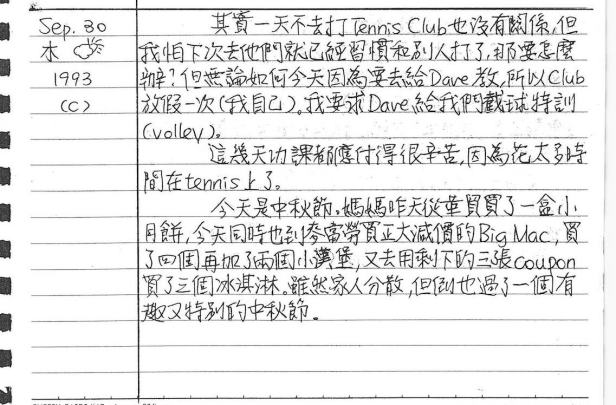 Sep. 30
木
1993
(C)
其實一天不去打Tennis Club也沒有關係,但
我怕下次去他們就已經習慣和別人打了,那要怎麼
辦?但無論如何今天因為要去給Dave教,所以Club
放假一次(我自己)。我要求Dave給我們截球特訓
(volley)。
這幾天功課都應付得很辛苦,因為花太多時
間在tennis上了。
今天是中秋節。媽媽昨天從華買買了一盒小
月餅,今天同時也到麥當勞買正大減價的Big Mac,買
了四個再加了兩個小漢堡,又去用剩下的三張coupon
買了三個冰淇淋。雖然家人分散,但倒也過了一個有
趣又特別的中秋節。